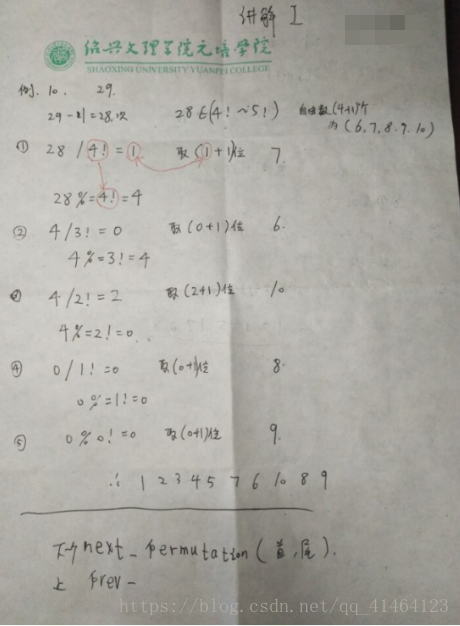 讲解 I
绍兴文理学院元培学院
SHAOXING UNIVERSITY YUANPEI COLLEGE
例. 10. 29.
29-1=28次 28∈(4!~5!) 自由数(4+1)个
为(6,7,8,9,10)
① 28 / 4! = 1 取(1+1)位 7.
28 %= 4! = 4
② 4/3! = 0 取(0+1)位 6.
4 %= 3! = 4
③ 4/2! = 2 取(2+1)位 10
4 %= 2! = 0
④ 0/1! = 0 取(0+1)位 8.
0 %= 1! = 0
⑤ 0 % 0! = 0 取(0+1)位 9.
∴ 1 2 3 4 5 7 6 10 8 9
下个 next_permutation(首,尾).
上 prev-
https://blog.csdn.net/qq_41464123